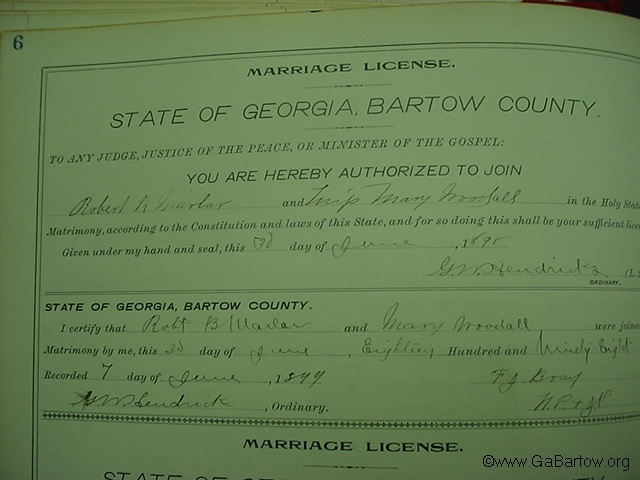 6
MARRIAGE LICENSE.
STATE OF GEORGIA, BARTOW COUNTY.
TO ANY JUDGE, JUSTICE OF THE PEACE, OR MINISTER OF THE GOSPEL:
YOU ARE HEREBY AUTHORIZED TO JOIN
Robert B Marlar and Miss Mary Woodall in the Holy State
Matrimony, according to the Constitution and laws of this State, and for so doing this shall be your sufficient lice
Given under my hand and seal, this 3d day of June , 189
G W Hendricks (L
ORDINARY.
STATE OF GEORGIA, BARTOW COUNTY.
I certify that Robt B Marlar and Mary Woodall were joine
Matrimony by me, this 3d day of June , Eighteen Hundred and Ninety Eight
Recorded 7 day of June , 1899 F J Bray
G W Hendrick , Ordinary. N.P. & J.P.
MARRIAGE LICENSE.
©www.GaBartow.org